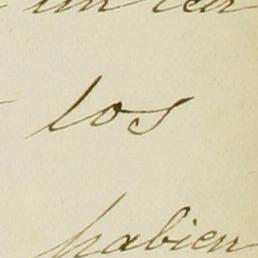 los
habien